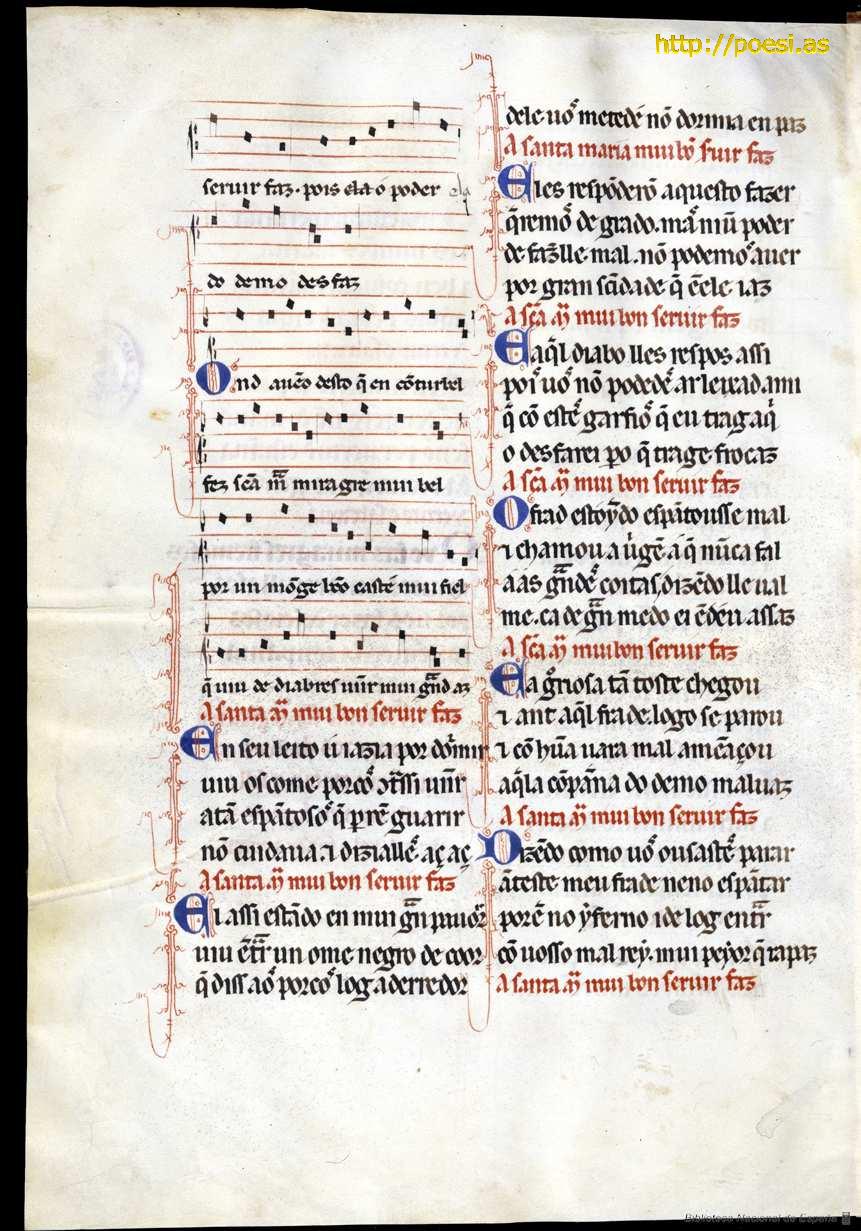 http://poesi.as
seruir faz. pois ela ó poder
do demo desfaz
Ond auẽo desto q̃ en cõturbel
fez scã m̃ miragre mui bel
por un mõge bõo castẽ mui fiel
q̃ uiu de diabres uĩir mui grãd az
A santa m̃ mui bon seruir faz
En seu leito ú iazia por dormir
uiu os come porcos cõtssi uĩir
atã espãtosos q̃ per rẽ guarir
nõ cuidaua ⁊ dizialle. aç aç
A santa m̃ mui bon seruir faz
El assi estãdo en mui grã pauor
uiu ẽtrar un ome negro de coor
q̃ diss aos porcos log a derredor
dele uos metedẽ nõ dormia en paz
A santa maria mui bõ s̃uir faz
Eles respõderõ aquesto fazer
q̃remos de grado. mas niũ poder
de fazlle mal. nõ podemos auer
por gran sc̃idade q̃ ẽ ele iaz
A scã m̃ mui bon seruir faz
E aq̃l diabo lles respos assi
pois uos nõ podedẽs ar leixad. a mi
q̃ cõ estes garfios q̃ eu trag aq̇
o desfarei pero q̃ trage frocaz
A scã m̃ mui bon seruir faz
O frad estoýdo espãtousse mal
⁊ chamou a uirgẽ a q̃ nũca fal
áas grãdes coitas, dizẽdo lle ual
me. ca de grã medo ei ẽ dẽu assaz
A scã m̃ mui bon seruir faz
E a groriosa tã toste chegou
⁊ ant aq̃l frade. logo se parou
⁊ cõ hũa uara mal amẽaçou
aq̃la cõpãna do demo maluaz
A santa m̃ mui bon seruir faz
Dizẽdo como uos ousastes parar
ãteste meu frade neno espãtar
porẽ no ýferno ide log entrar
cõ uosso mal rey. mui peyor q̃ rapaz
A santa m̃ mui bon seruir faz
Biblioteca Nacional de España